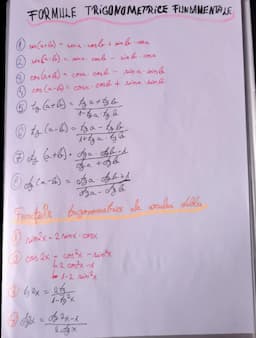 FORMULE TRIGONOMETRICE FUNDAMENTALE
① sin(a+b) = sina · cosb + sinb · cosa
② sin(a-b) = sina · cosb - sinb · cosa
③ cos(a+b) = cosa · cosb - sina · sinb
④ cos(a-b) = cosa · cosb + sina · sinb
⑤ tg(a+b) = tga + tgb / 1 - tga · tgb
⑥ tg(a-b) = tga - tgb / 1 + tga · tgb
⑦ ctg(a+b) = ctga · ctgb - 1 / ctga + ctgb
⑧ ctg(a-b) = ctga · ctgb + 1 / ctga - ctgb
Formulele trigonometrice
① sin2x = 2 sinx · cosx
② cos2x = cos²x - sin²x
= 2 cos²x - 1
= 1 - 2 sin²x
③ tg2x = 2tg / 1 - tg²x
④ ctg²x - 1 / 2ctgx